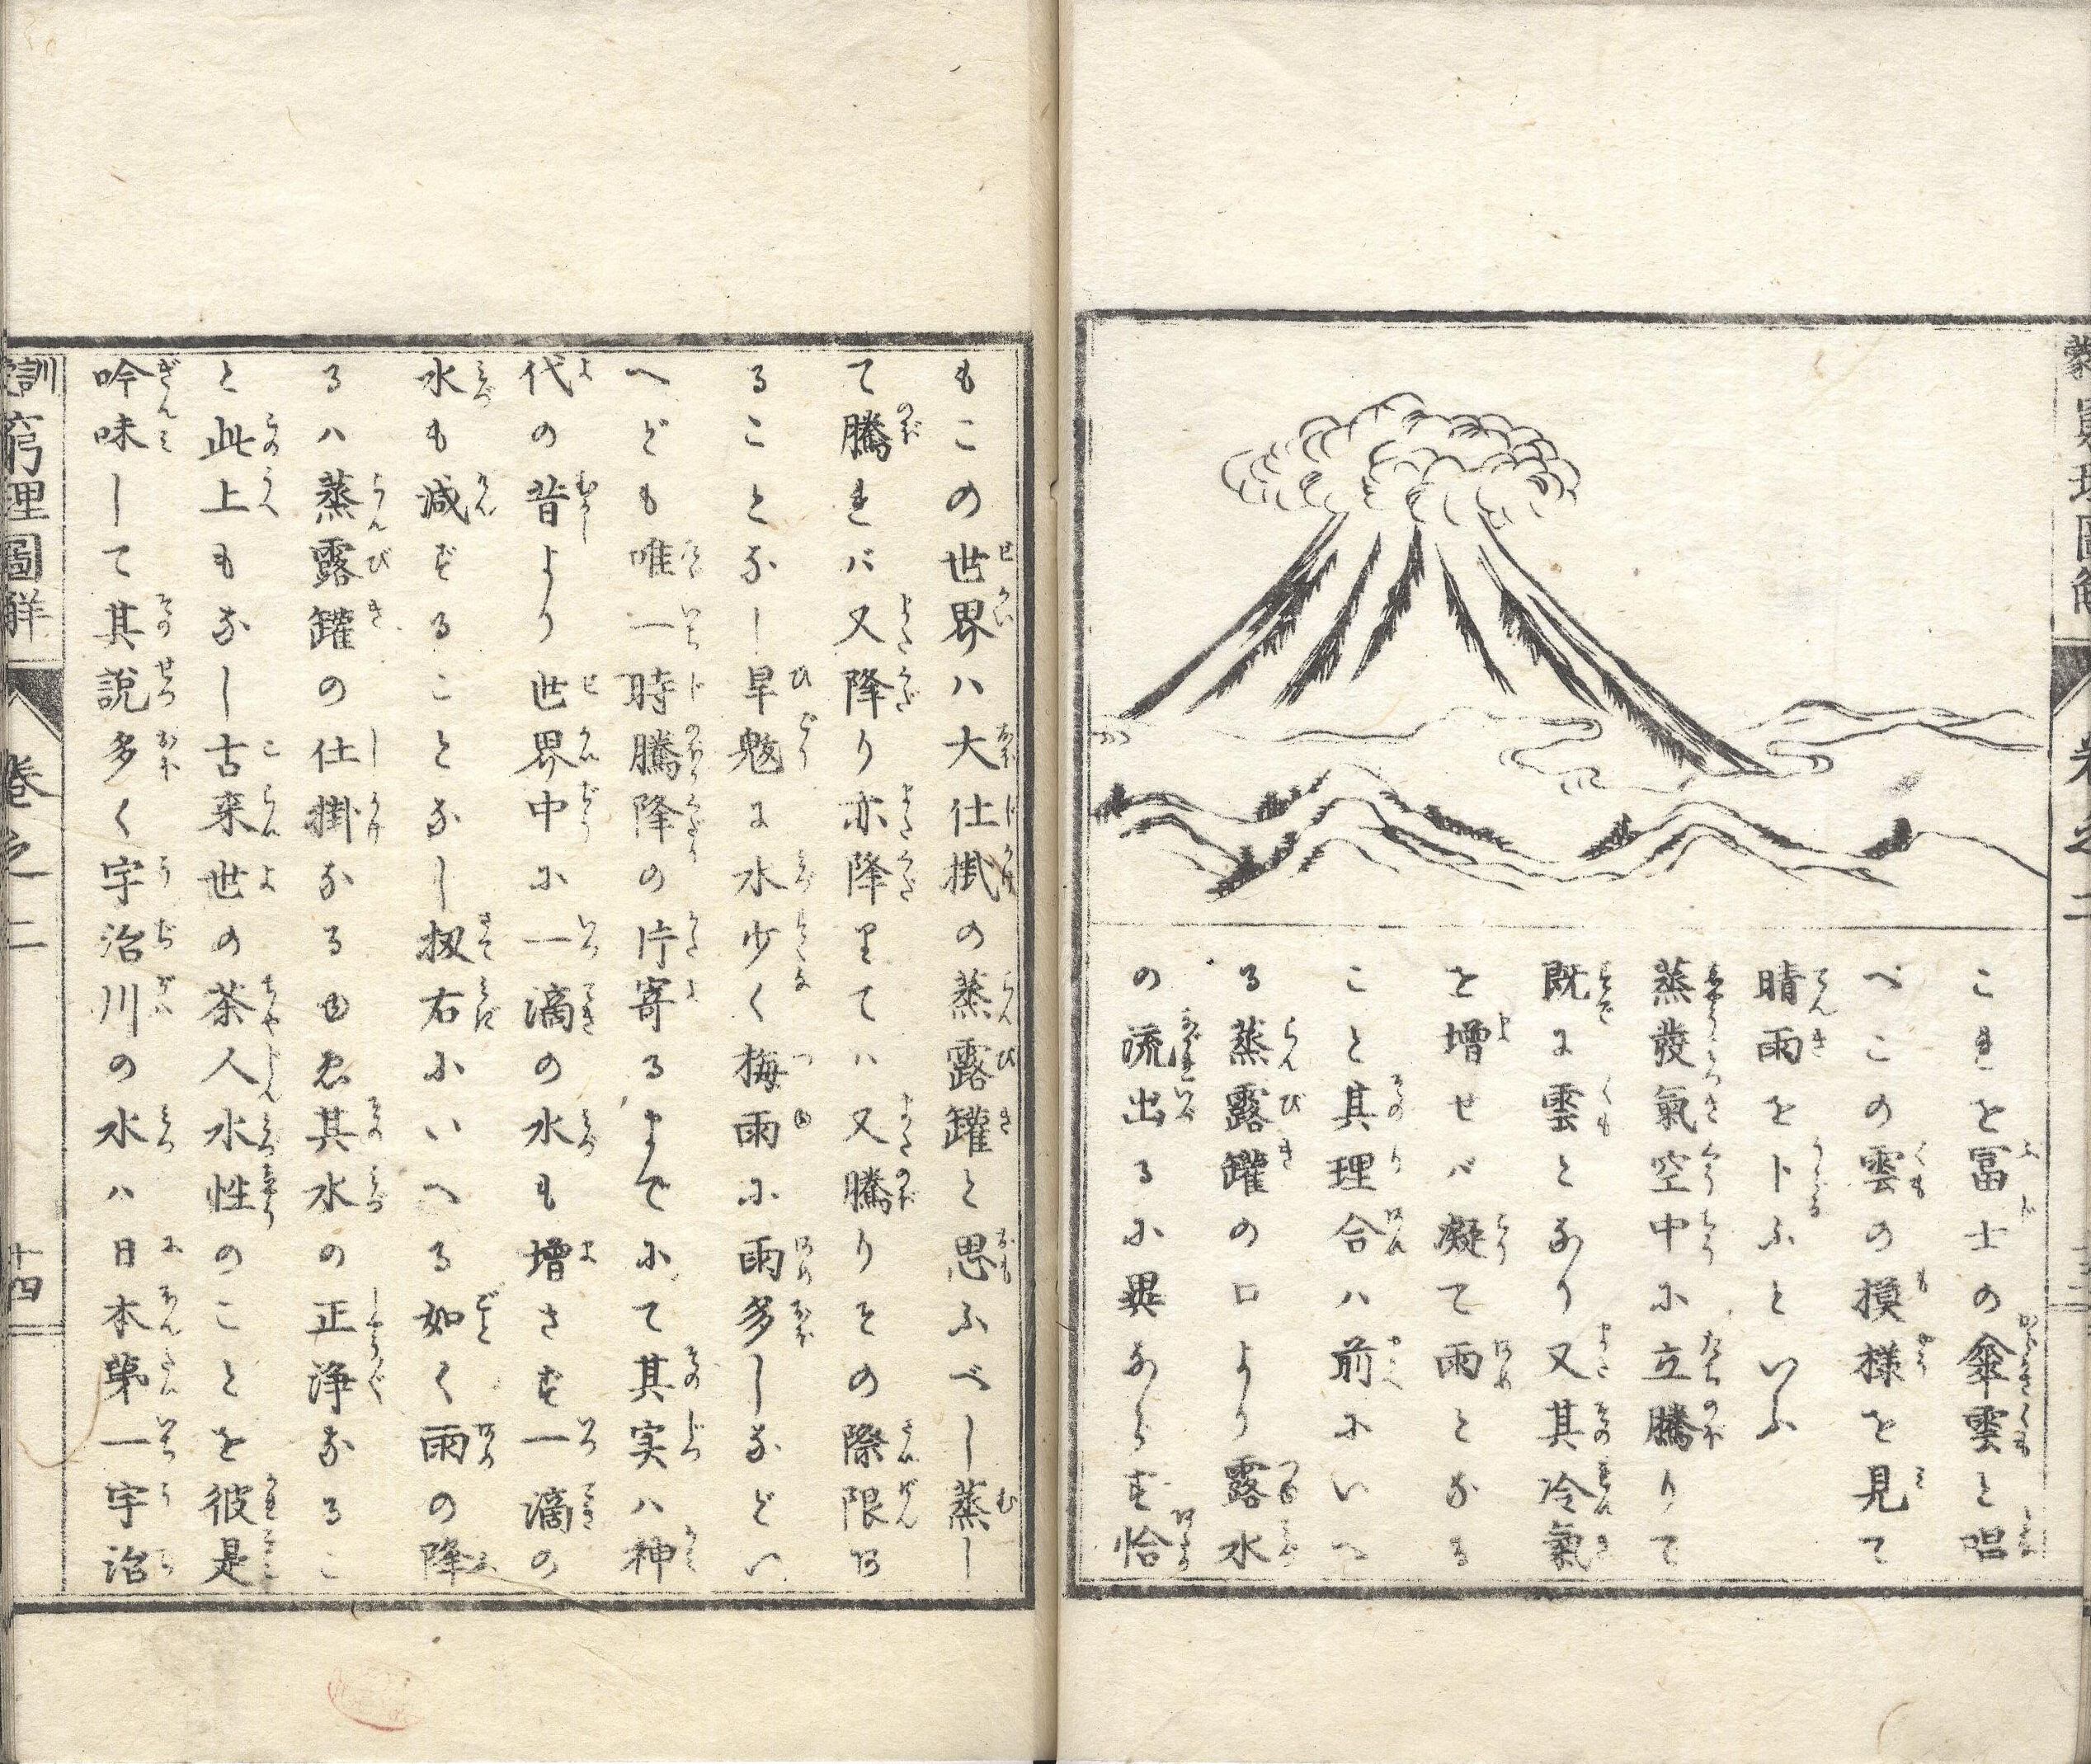 これを冨士の傘雲と唱
べこの雲の摸様を見て
晴雨を卜ふといふ
蒸發氣空中に立騰りて
既に雲となり又其冷氣
を増せバ凝て雨となる
こと其理合ハ前にいへ
る蒸露罐の口より露水
の流出るに異ならず恰
もこの世界ハ大仕掛の蒸露罐と思ふべし蒸し
て騰れバ又降り亦降りてハ又騰りその際限あ
ることなし旱魃に水少く梅雨に雨多しなどい
へども唯一時騰降の片寄るまでにて其実ハ神
代の昔より世界中に一滴の水も増さず一滴の
水も減ずることなし扨右にいへる如く雨の降
るハ蒸露罐の仕掛なるゆゑ其水の正浄なるこ
と此上もなし古来世の茶人水性のことを彼是
吟味して其說多く宇治川の水ハ日本第一宇治
訓蒙窮理圖解
卷之二
十四